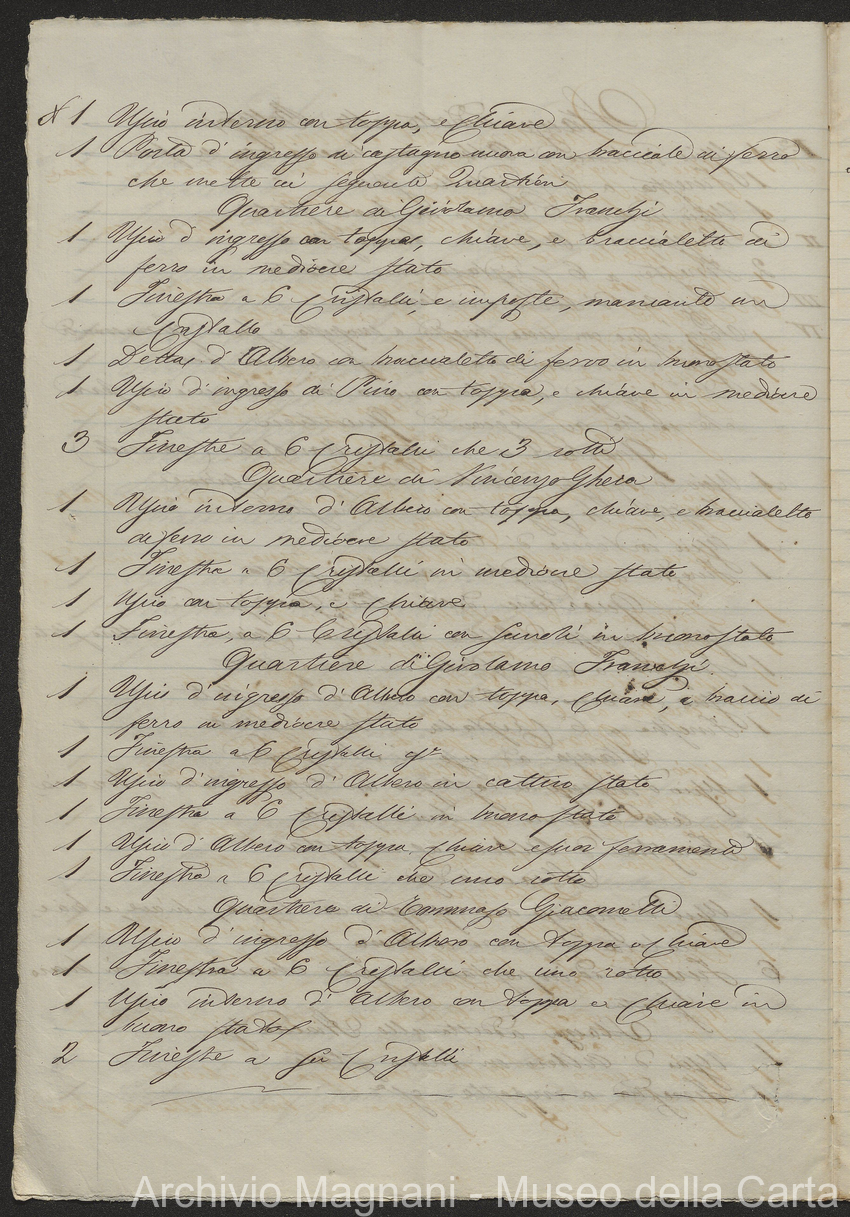 1 Uscio interno con toppa, e chiave
1 Porta d'ingresso di castagno nuova con bracciale di ferro
che mette ai seguenti Quartieri
Quartiere di Girolamo Franchi
1 Uscio d'ingresso con toppa, chiave, e braccialetto di
ferro in mediocre stato
1 Finestra a 6 Cristalli, e imposte, mancante un
Cristallo
1 Detta d'Albero con braccialetto di ferro in buono stato
1 Uscio d'ingresso di Pino con toppa, e chiave in mediocre
stato
3 Finestre a 6 Cristalli che 3 rotti
Quartiere di Vincenzo Ghera
1 Uscio interno d'Albero con toppa, chiave, e braccialetto
di ferro in mediocre stato
1 Finestra a 6 Cristalli in mediocre stato
1 Uscio con toppa, e Chiave
1 Finestra, a 6 Cristalli con in buono stato
Quartiere di Girolamo Franchi
1 Uscio d'ingresso d'Albero con toppa, Chiave, e braccio di
ferro in mediocre stato
1 Finestra a 6 Cristalli
1 Uscio d'ingresso d'Albero in cattivo stato
1 Finestra a 6 Cristalli in buono stato
1 Uscio d'Albero con toppa chiave e suoi ferramenti
1 Finestra a 6 Cristalli che uno rotto
Quartiere di Tommaso Giacomelli
1 Uscio d'ingresso d'Albero con toppa e Chiave
1 Finestra a 6 Cristalli che uno rotto
1 Uscio interno d'Albero con toppa e Chiave in
buono stato
2 Finestre a sei Cristalli
Archivio Magnani - Museo della Carta